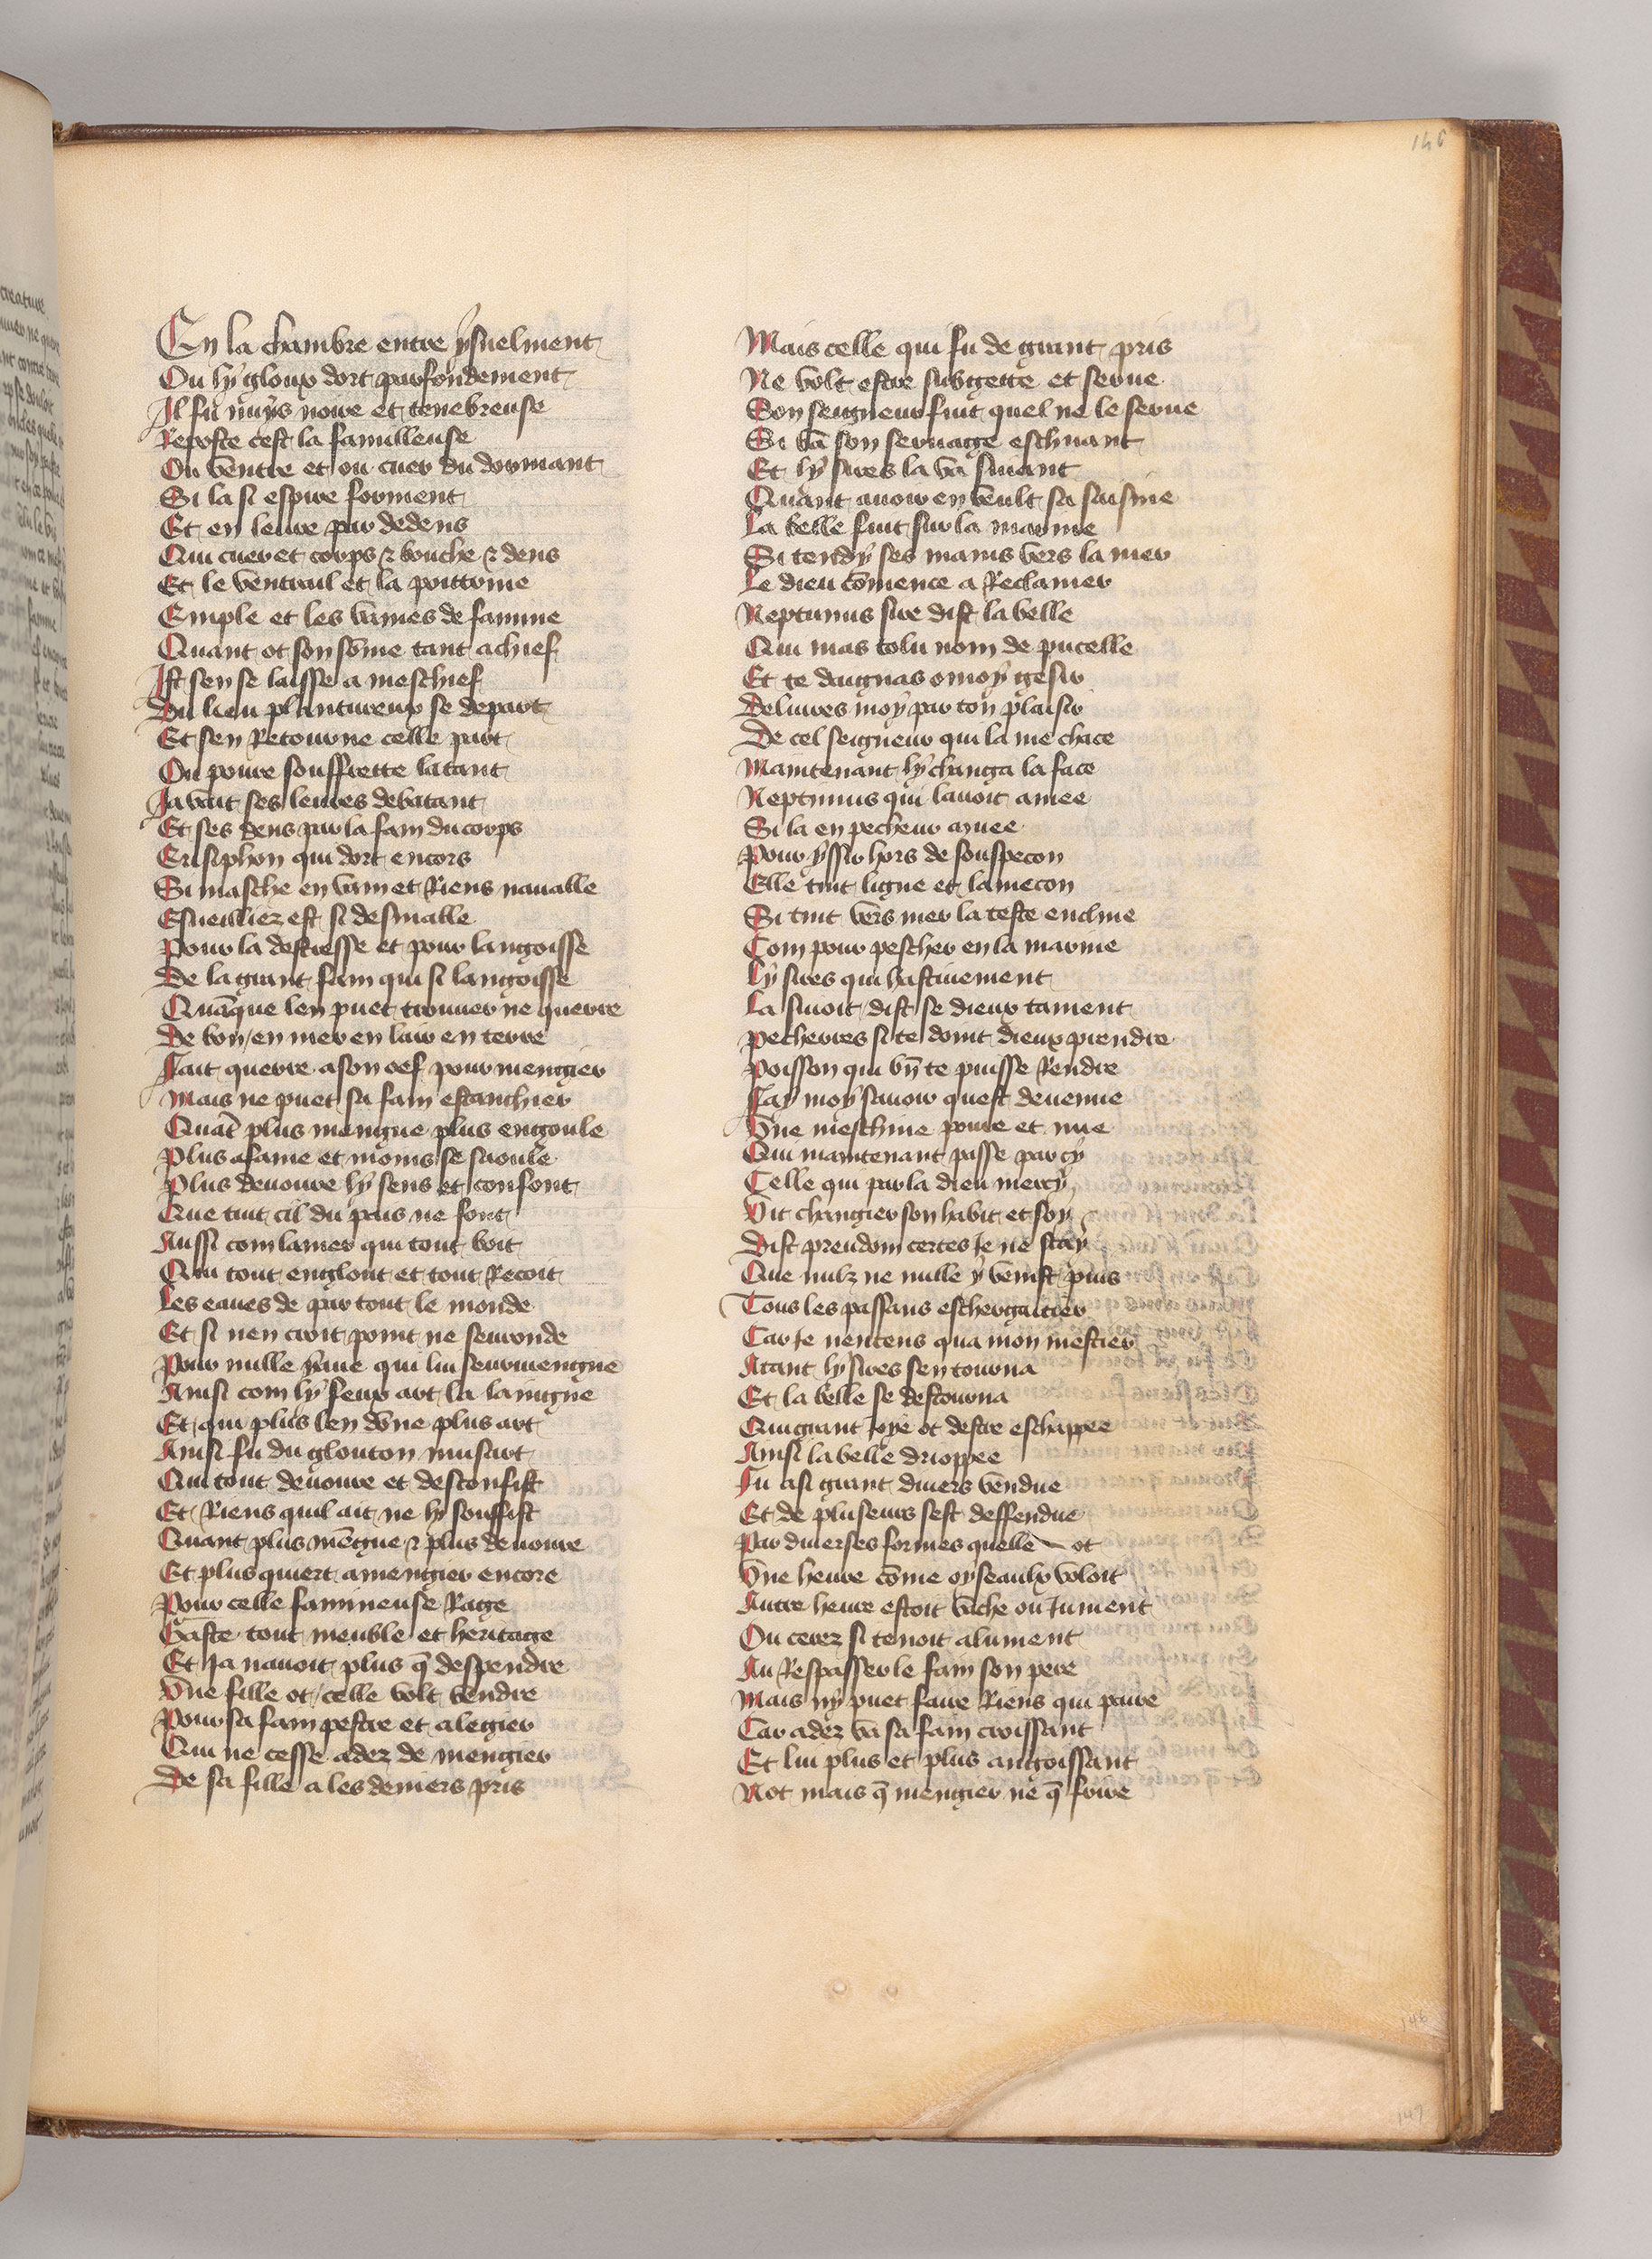 146
En la chambre entre ysnelment
Ou ly gloux dort parfondement
Il fu nuys noire et tenebreuse
Reposte cest la familleuse
Ou ventre et ou cuer du dormant
Si la si espire forment
Et en leure par dedens
Qui cuer et corps et bouche et dens
Et le ventrail et la poittrine
Emple et les vaines de famine
Quant ot son sōme tant a chief
Ist sen se laisse a meschief
Du lieu plantureux se depart
Et sen Retourne celle part
Ou poure souffrette latant
Ja vait ses leures debatant
Et ses dens par la fam du corps
Crisiphon qui dort encors
Si masche en vain et Riens navalle
Esueilliez est si desmalle
Pour la destresse et pour langoisse
De la grant fam qui si langoisse
Quāque len puet trouuer ne querre
De bon en mer en lair en terre
Fait querre a son oef pour mengier
Mais ne puet sa fam estanchier
Quāt plus mengue plus engoule
Plus afame et moins se saoule
Plus deuoure ly sens et confont
Que tuit cil du pais ne font
Aussi com la mer qui tout boit
Qui tout englout et tout Recoit
Les eaues de par tout le monde
Et si nen croit point ne seuronde
Pour nulle yaue qui lui seurmengne
Ainsi com ly feux art la laingne
Et qui plus len dōne plus art
Ainsi fu du glouton musart
Qui tout deuoure et desconfist
Et Riens quil ait ne ly souffist
Quant plus mēgue et plus deuoure
Et plus quiert a mengier encore
Pour celle famineuse Rage
Gaste tout meuble et heritage
Et Ja nauoit plus q̄ despendre
Vne fille ot celle volt vendre
Pour sa fam pestre et alegier
Qui ne cesse adez de mengier
De sa fille a les deniers pris
Mais celle qui fu de grant pris
Ne volt estre subgette et serue
Son seigneur fuit quel ne le serue
Si va son seruage eschiuant
Et ly sires la va siuant
Quant auoir en veult sa saisine
La belle fuit sur la marine
Si tendy ses mains vers la mer
Le dieu cōmence a Reclamer
Neptunus sire dist la belle
Qui mas tolu nom de pucelle
Et te daignas o moy gesir
Deliures moy par ton plaisir
De cel seigneur qui la me chace
Maintenant ly changa la face
Neptunus qui lauoit amee
Si la en pecheur muee
Pour yssir hors de souspecon
Elle tint ligne et lamecon
Si tint vers mer la teste encline
Com pour pescher en la marine
Ly sires qui hastiuement
La siuoit dist se dieux tament
Pecherres si te doint dieux prendre
Poisson qui bn̄ te puisse Rendre
Fay moy sauoir quest deuenue
Vne meschine poure et nue
Qui maintenant passe par cy
Celle qui par la dieu mercy
Vit changier son habit et son
Dist preudom certes Je ne scay
Que nulz ne nulle y venist puis
Tous les passans eschergaitier
Car Je nentens qua mon mestier
Atant ly sires sen tourna
Et la belle se destourna
Qui grant Joye ot destre eschappee
Ainsi la belle drioppee
Fu a si grant diuers vendue
Et de pluseurs sest deffendue
Par diuerses formes quelle ot
Vne heure cōme oyseaulx voloit
Autre heure estoit vache ou Jument
Ou cerez si tenoit alument
Au Respasser le fain son pere
Mais ny puet faire Riens qui paire
Car adez va sa fam croissant
Et lui plus et plus angoissant
Not mais q̄ mengier ne q̄ frire
146
147